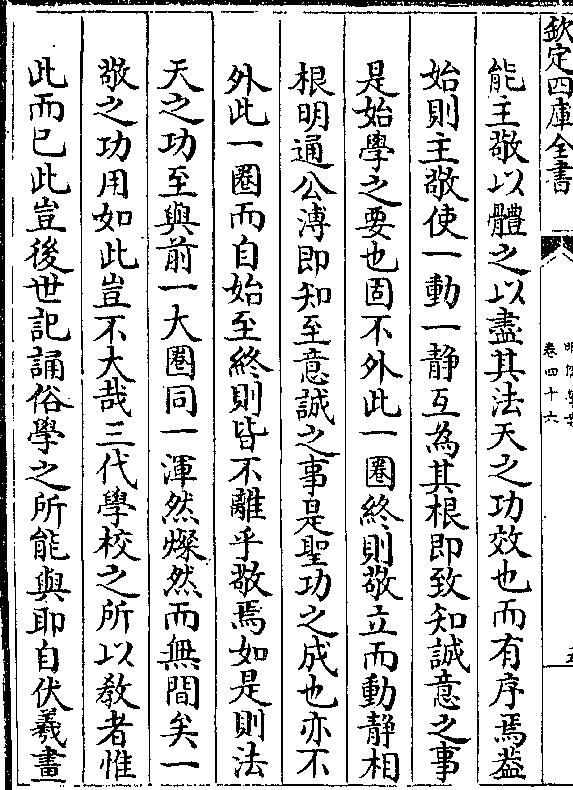 欽定四庫全書
卷四十六
能主敬以體之以盡其法天之功效也而有序焉葢
始則主敬使一動一静互為其根即致知誠意之事
是始學之要也固不外此一圈終則敬立而動靜相
根明通公溥即知至意誠之事是聖功之成也亦不
外此一圈而自始至終則皆不離乎敬焉如是則法
天之功至與前一大圈同一渾然燦然而無間矣一
敬之功用如此豈不大哉三代學校之所以敎者惟
此而已此豈後世記誦俗學之所能與耶自伏羲畫